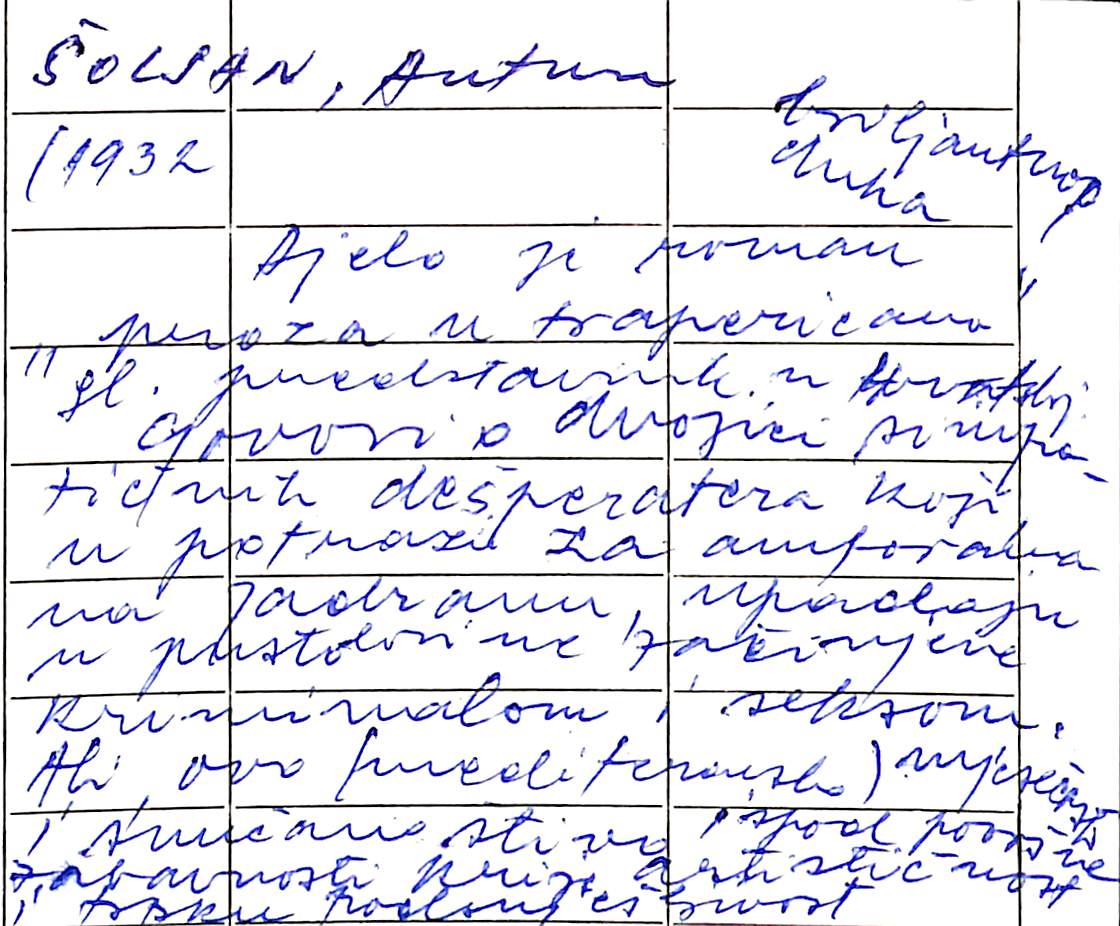 ŠOLJAN, Antun
(1932
briljantnog
duha
Djelo je roman
"proza u trapericama"
gl. predstavnik u Hrvatskoj.
Govori o dvojici simpa-
tičnih dešperatera koji
u potrazi za amforama
na Jadranu, upadaju
u pustolovine začinjene
kriminalom i seksom.
Ali ovo (mediteransko)
i sunčano štivo ispod površne
zabavnosti krije artističnost
i